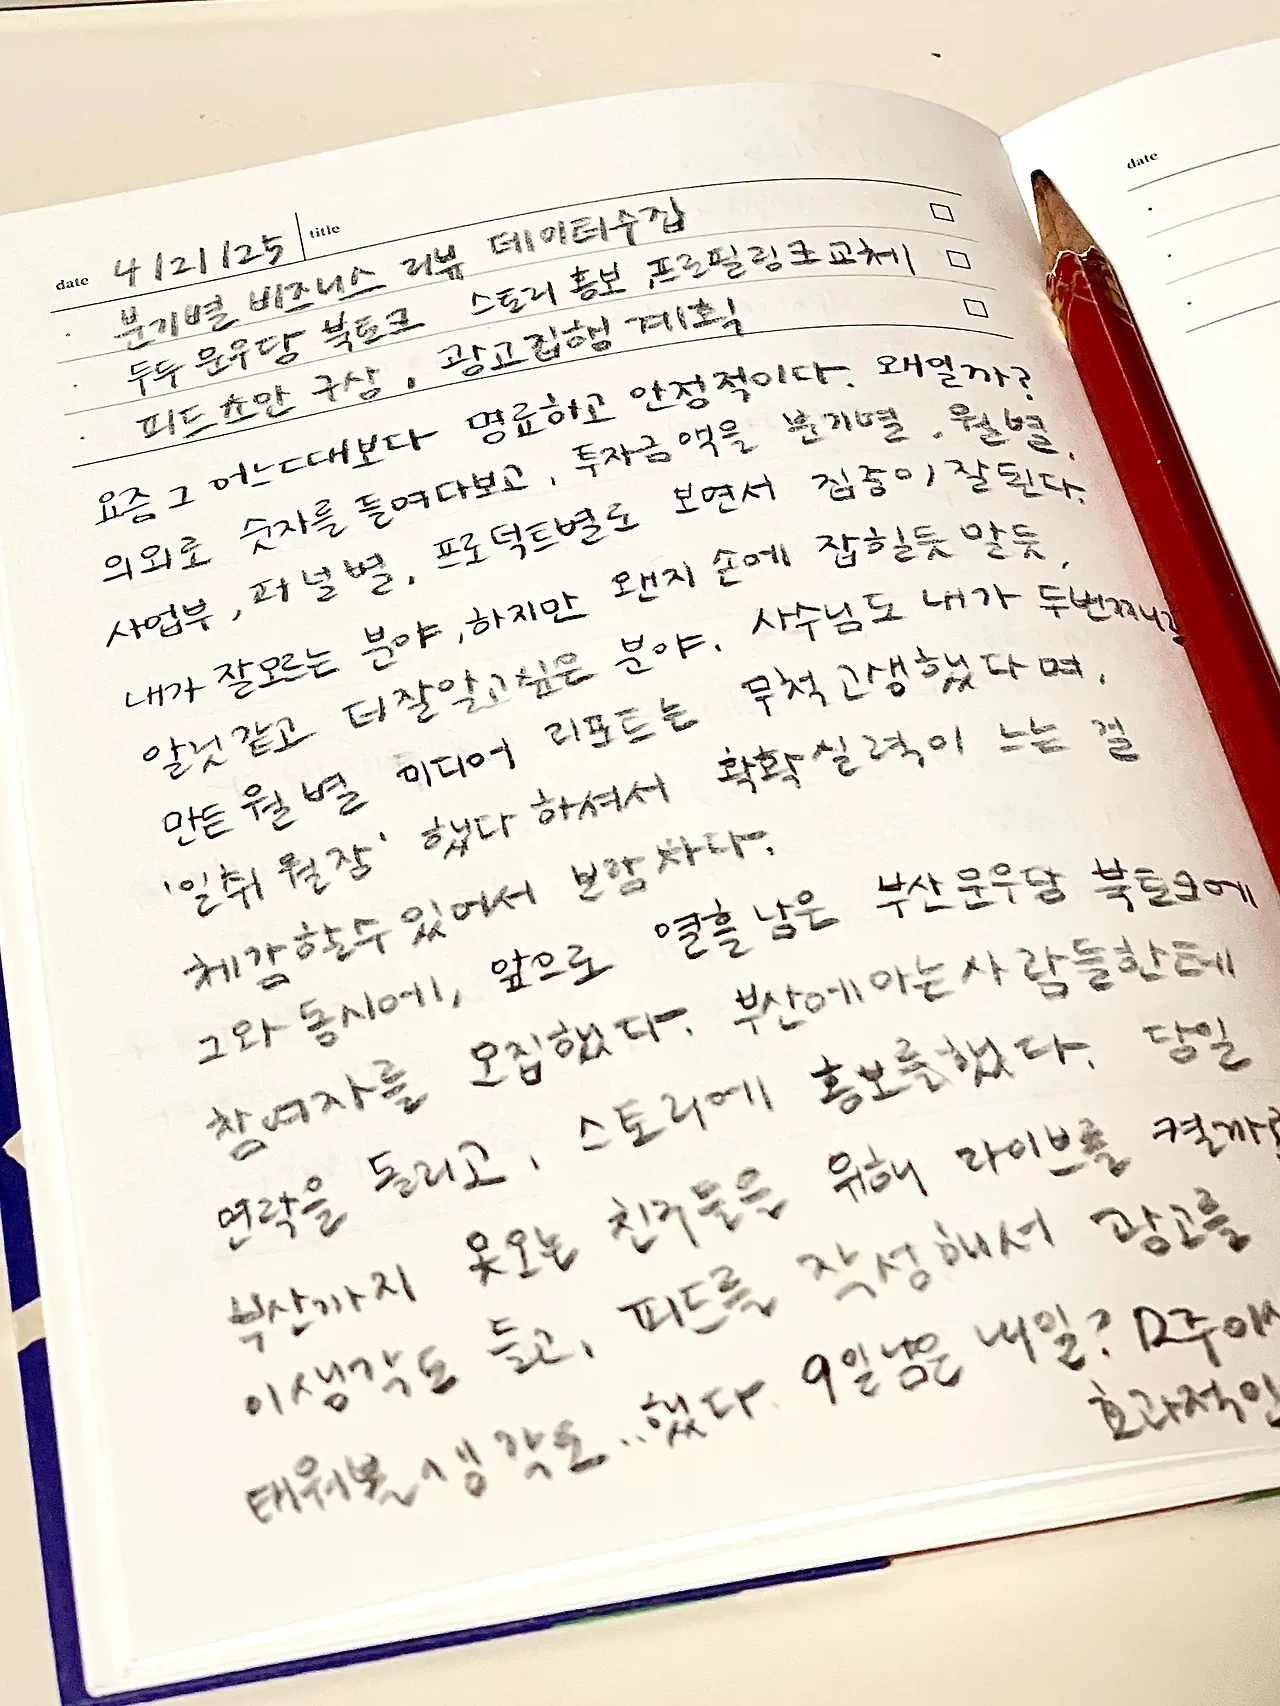 date 4/21/25 title
· 분기별 비즈니스 리뷰 데이터수집
· 두두 운우당 북토크 스토리 홍보, 프로필링크교체
· 피드초안 구상, 광고집행 계획
요즘 그 어느때보다 명료하고 안정적이다. 왜일까?
의외로 숫자를 들여다보고, 투자금액을 분기별, 월별,
사업부, 퍼널별, 프로덕트별로 보면서 집중이 잘된다.
내가 잘모르는 분야, 하지만 왠지 손에 잡힐듯 말듯,
알것 같고 더 잘알고싶은 분야. 사수님도 내가 두번째로
만든 월별 미디어 리포트는 무척 고생했다며,
'일취월장' 했다 하셔서 확확 실력이 느는 걸
체감할수 있어서 보람차다.
그와 동시에, 앞으로 열흘 남은 부산 운우당 북토크에
참여자를 모집했다. 부산에 아는 사람들한테
연락을 돌리고, 스토리에 홍보를 했다. 당일
부산까지 못오는 친구들을 위해 라이브를 켤까
이생각도 들고, 피드를 작성해서 광고를
태워볼 생각도..했다. 9일남은 내일?
효과적인
date